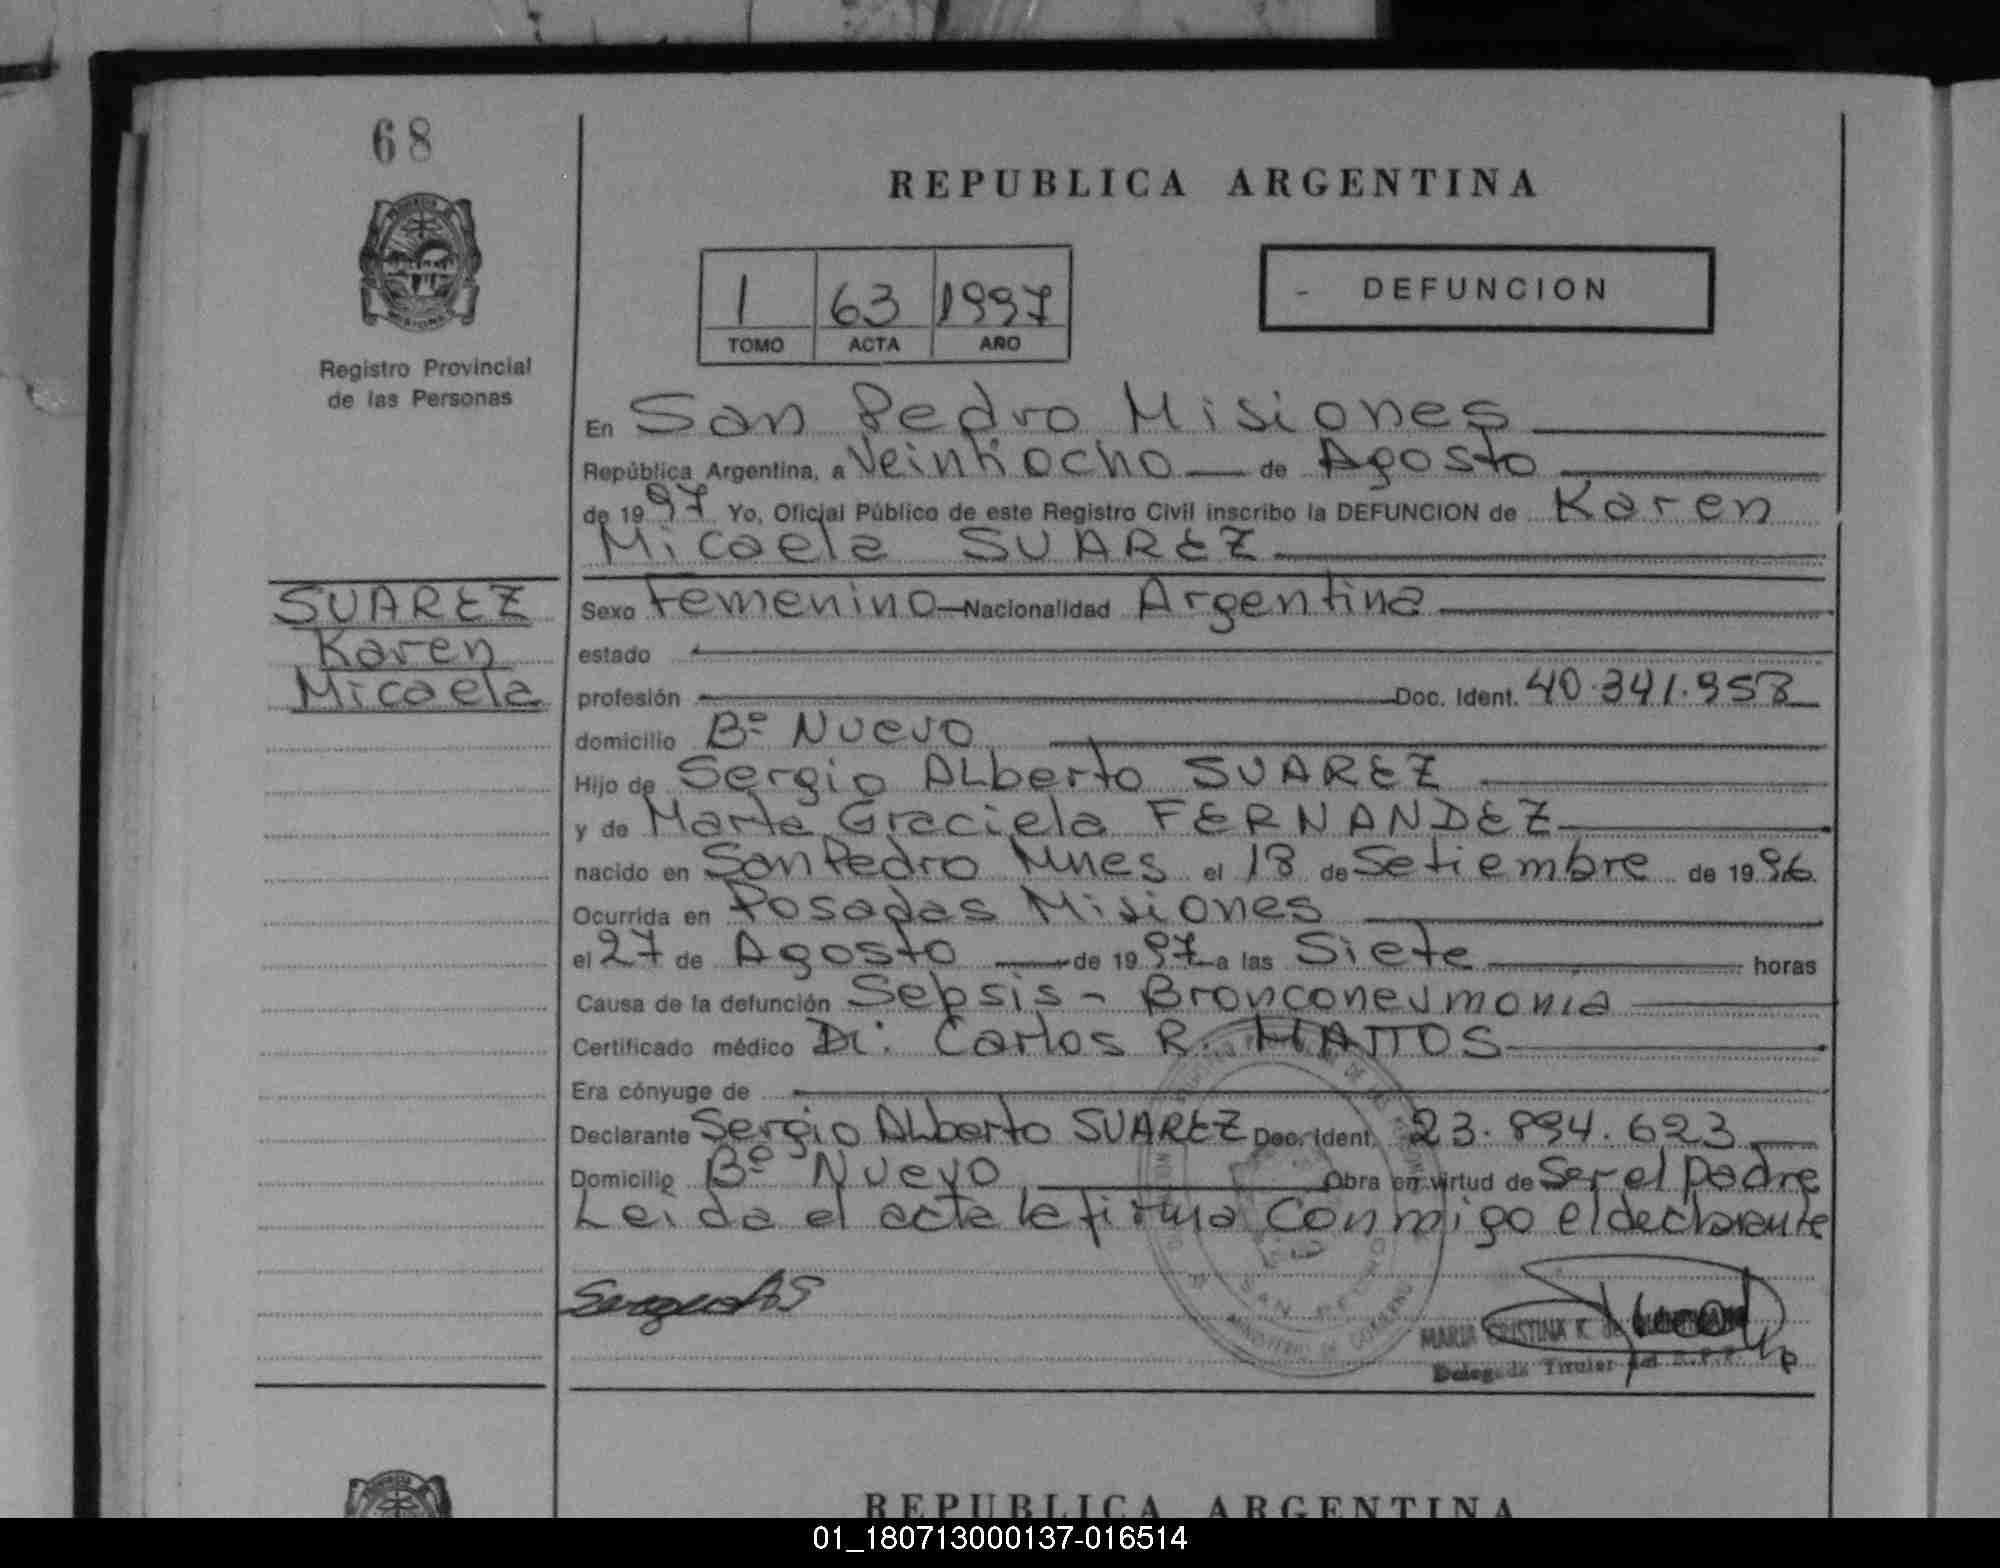 68
REPUBLICA ARGENTINA
1 63 1997
TOMO ACTA AÑO
- DEFUNCION
Registro Provincial
de las Personas
En San Pedro Misiones
República Argentina, a Veintiocho de Agosto
de 1997 Yo, Oficial Público de este Registro Civil inscribo la DEFUNCION de Karen
Micaela SUAREZ
SUAREZ
Karen
Micaela
Sexo Femenino Nacionalidad Argentina
estado
profesión Doc. Ident. 40.341.958
domicilio Bº Nuevo
Hijo de Sergio ALberto SUAREZ
y de Marta Graciela FERNANDEZ
nacido en San Pedro Mnes el 18 de Setiembre de 1996
Ocurrida en Posadas Misiones
el 27 de Agosto de 1997 a las Siete horas
Causa de la defunción Sepsis - Bronconeumonia
Certificado médico Dr. Carlos R. MATTOS
Era cónyuge de
Declarante Sergio ALberto SUAREZ Doc. Ident. 23.894.623
Domicilio Bº Nuevo Obra en virtud de Ser el padre
Leida el acta la firma Conmigo el declarante
MARIA CRISTINA K. de
Delegada Titular del R.P.P.
SAN PEDRO
MINISTERIO DE GOBIERNO
REPUBLICA ARGENTINA
01_180713000137-016514